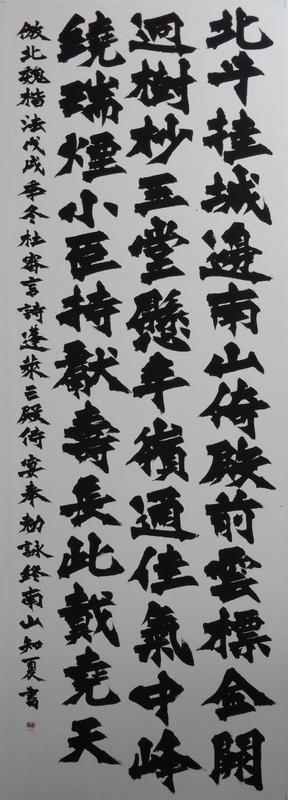 北斗挂城邊南山倚殿前雲標金闕
迥樹杪玉堂懸半嶺通佳氣中峰
繞瑞煙小臣持獻壽長此戴堯天
倣北魏楷法戊戌年冬杜審言詩蓬萊三殿侍宴奉勅詠終南山知夏書